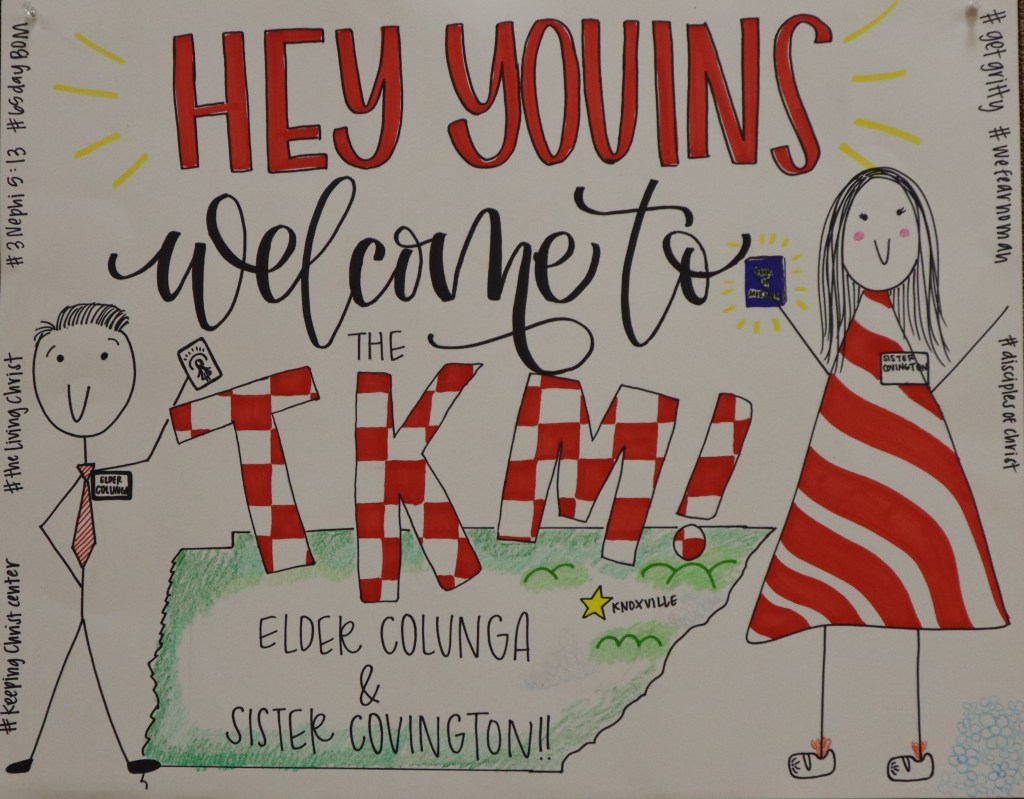 HEY YOUINS
welcome to
THE
TKM!
KNOXVILLE
ELDER COLUNGA
&
SISTER COVINGTON!!
ELDER
COLUNGA
BOOK
OF
MORMON
SISTER
COVINGTON
#3 Nephi 5:13 #65dayBOM
#the Living Christ
#Keeping Christ center
#getgritty #wefearnoman
#disciples of christ